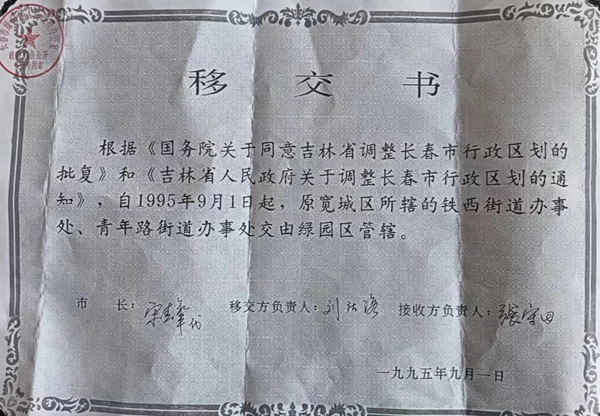 移交书
根据《国务院关于同意吉林省调整长春市行政区划的
批复》和《吉林省人民政府关于调整长春市行政区划的通
知》，自1995年9月1日起，原宽城区所辖的铁西街道办事
处、青年路街道办事处交由绿园区管辖。
市 长： 移交方负责人： 接收方负责人：张守田
一九九五年九月一日